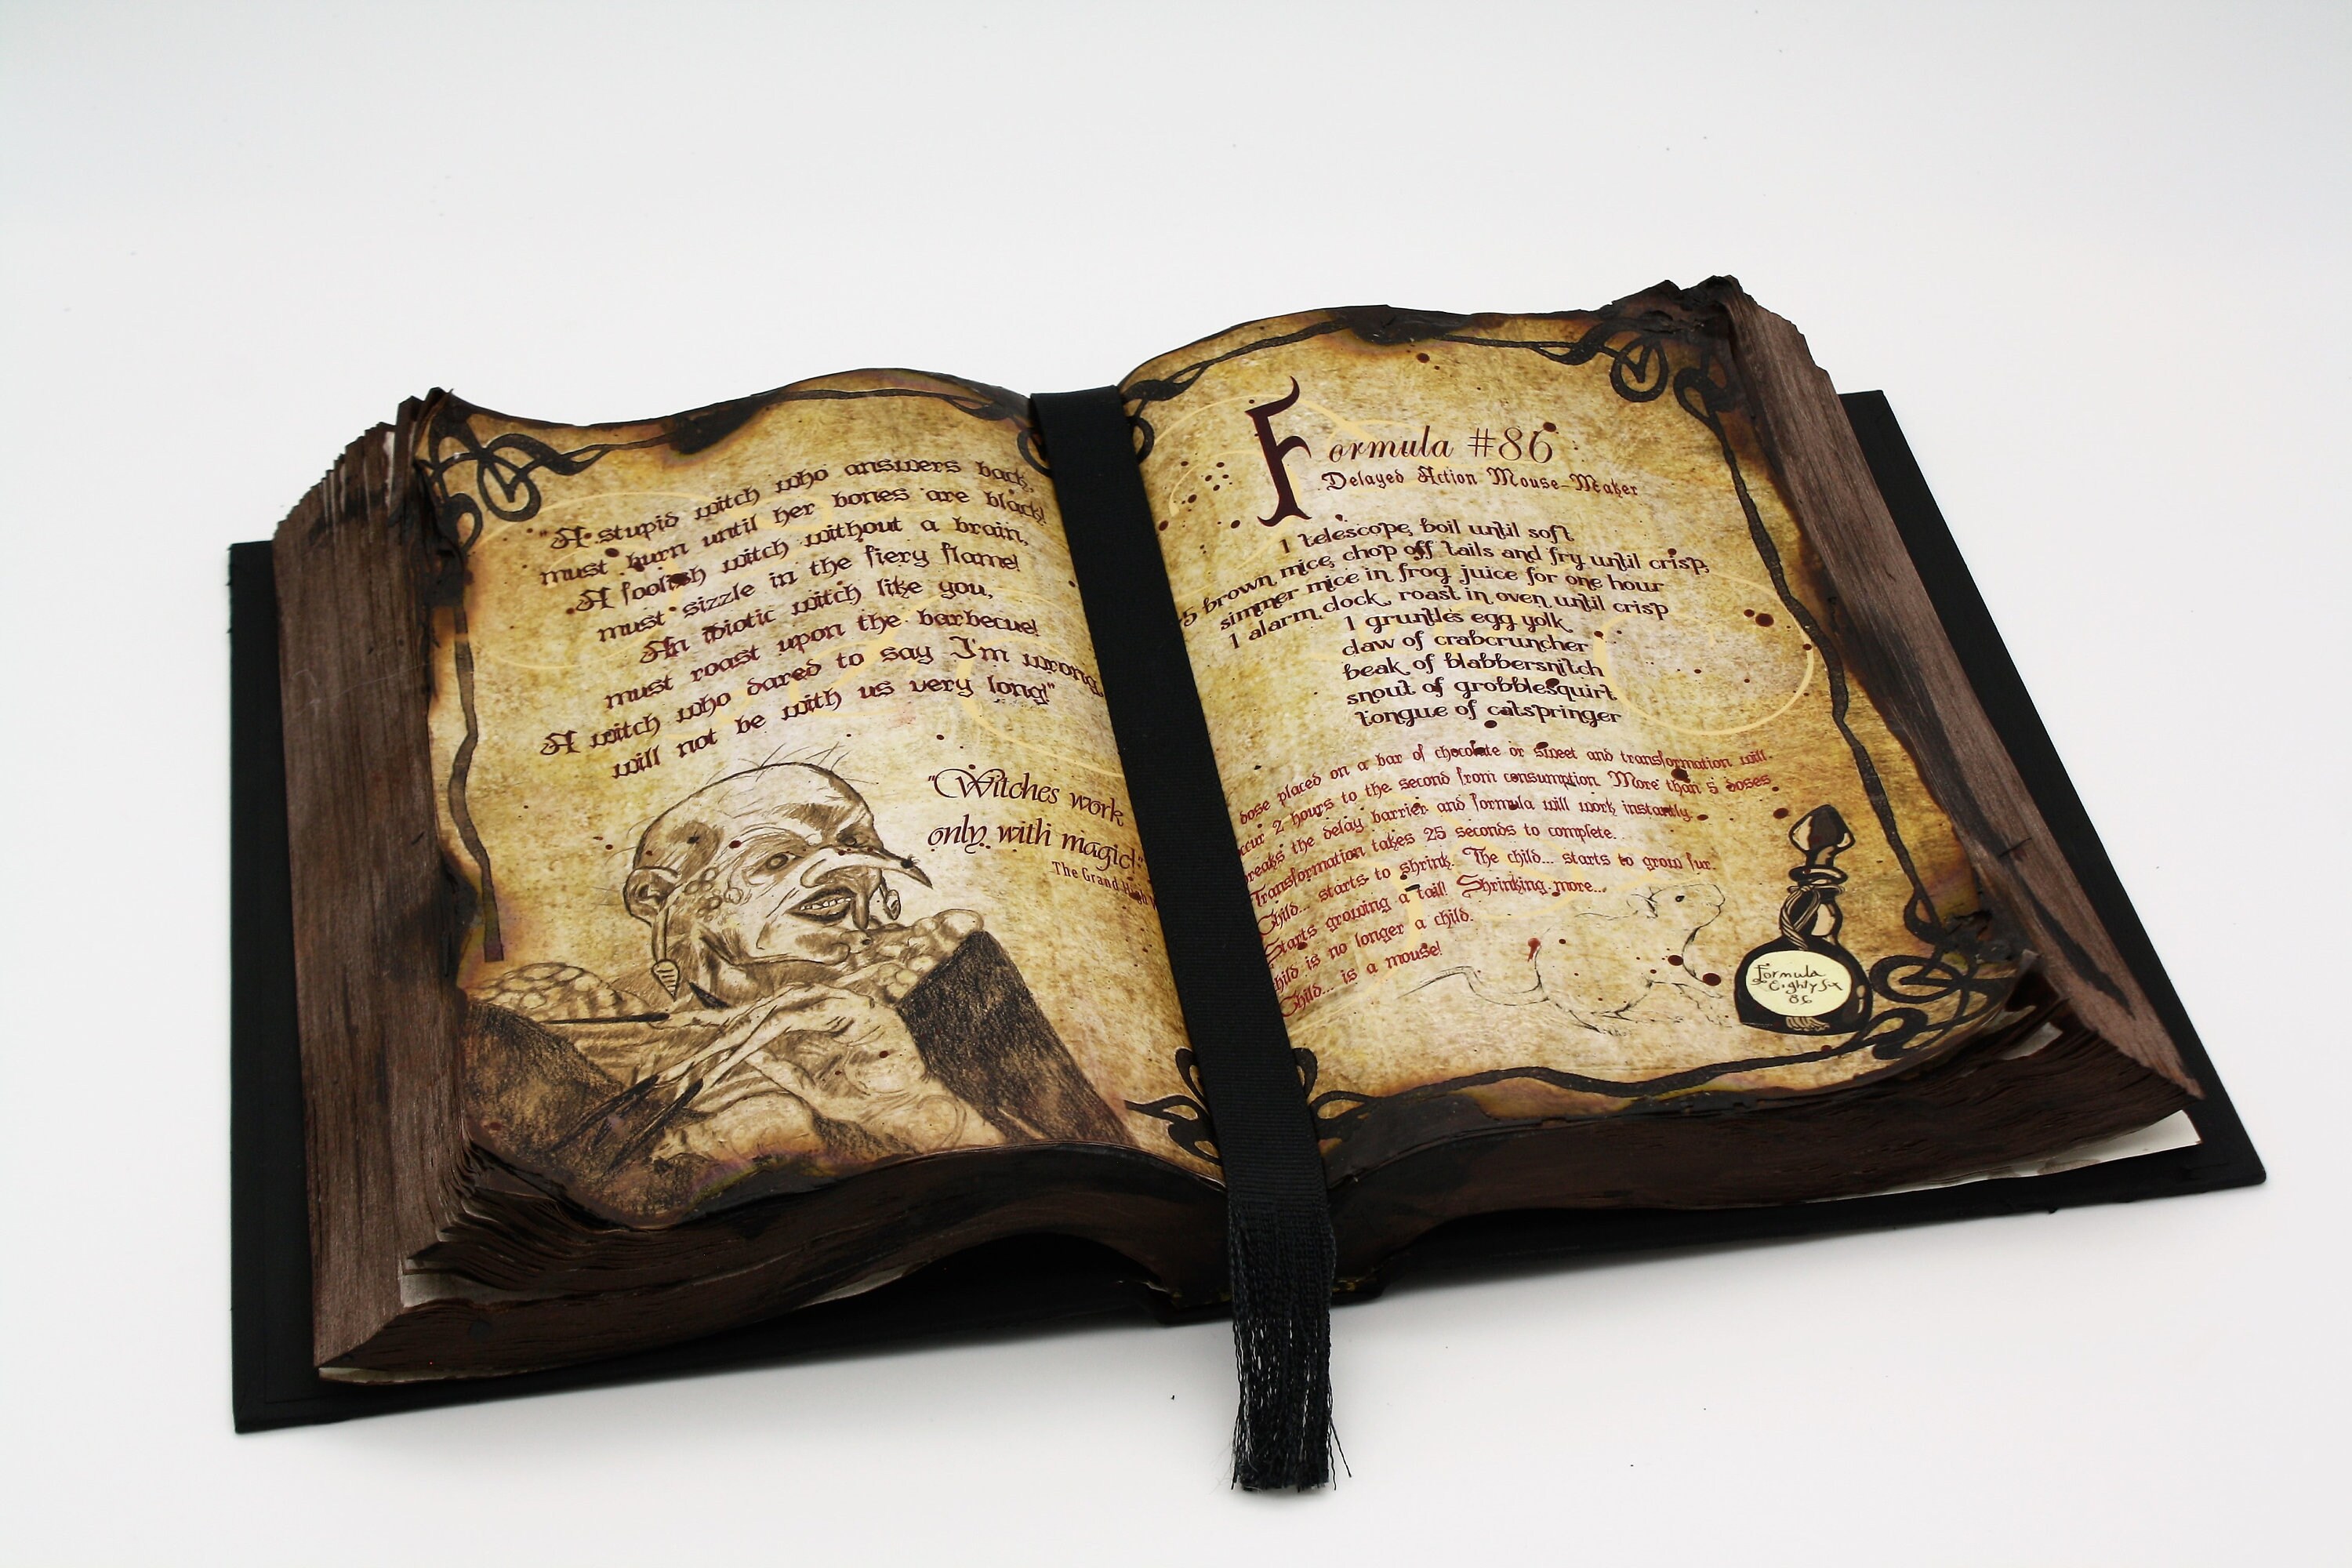 "A stupid witch who answers back,
must burn until her bones are black!
A foolish witch without a brain,
must sizzle in the fiery flame!
An idiotic witch like you,
must roast upon the barbecue!
A witch who dared to say I'm wrong,
will not be with us very long!"
"Witches work
only with magic!"
The Grand High
Formula #86
Delayed Action Mouse-Maker
1 telescope, boil until soft
5 brown mice, chop off tails and fry until crisp,
simmer mice in frog juice for one hour
1 alarm clock, roast in oven until crisp
1 gruntle's egg yolk
claw of crabcruncher
beak of blabbersnitch
snout of grobblesquirt
tongue of catspringer
dose placed on a bar of chocolate or sweet and transformation will
ccur 2 hours to the second from consumption. More than 5 doses
reaks the delay barrier and formula will work instantly.
Transformation takes 25 seconds to complete.
Child... starts to shrink. The child... starts to grow fur.
Starts growing a tail! Shrinking more...
hild is no longer a child.
Child... is a mouse!
Formula
Eighty Six
86